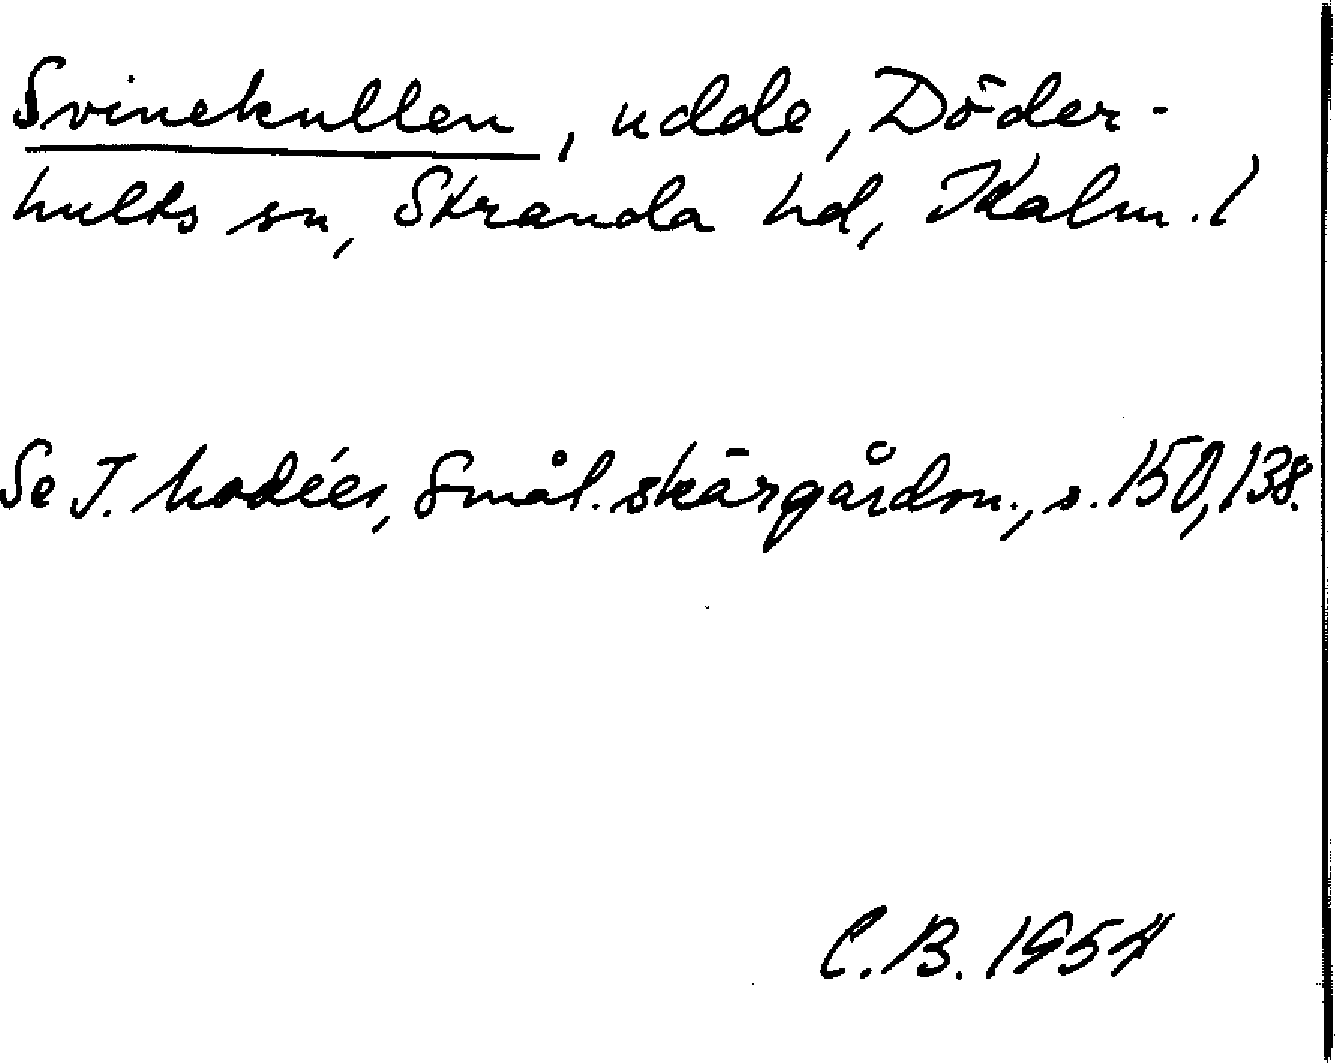 Svinekullen, udde, Döder-
hults sn, Stranda hd, Kalm. l
Se T. Modéer, Smål. skärgårdsn., s. 150, 138.
C.B. 1954